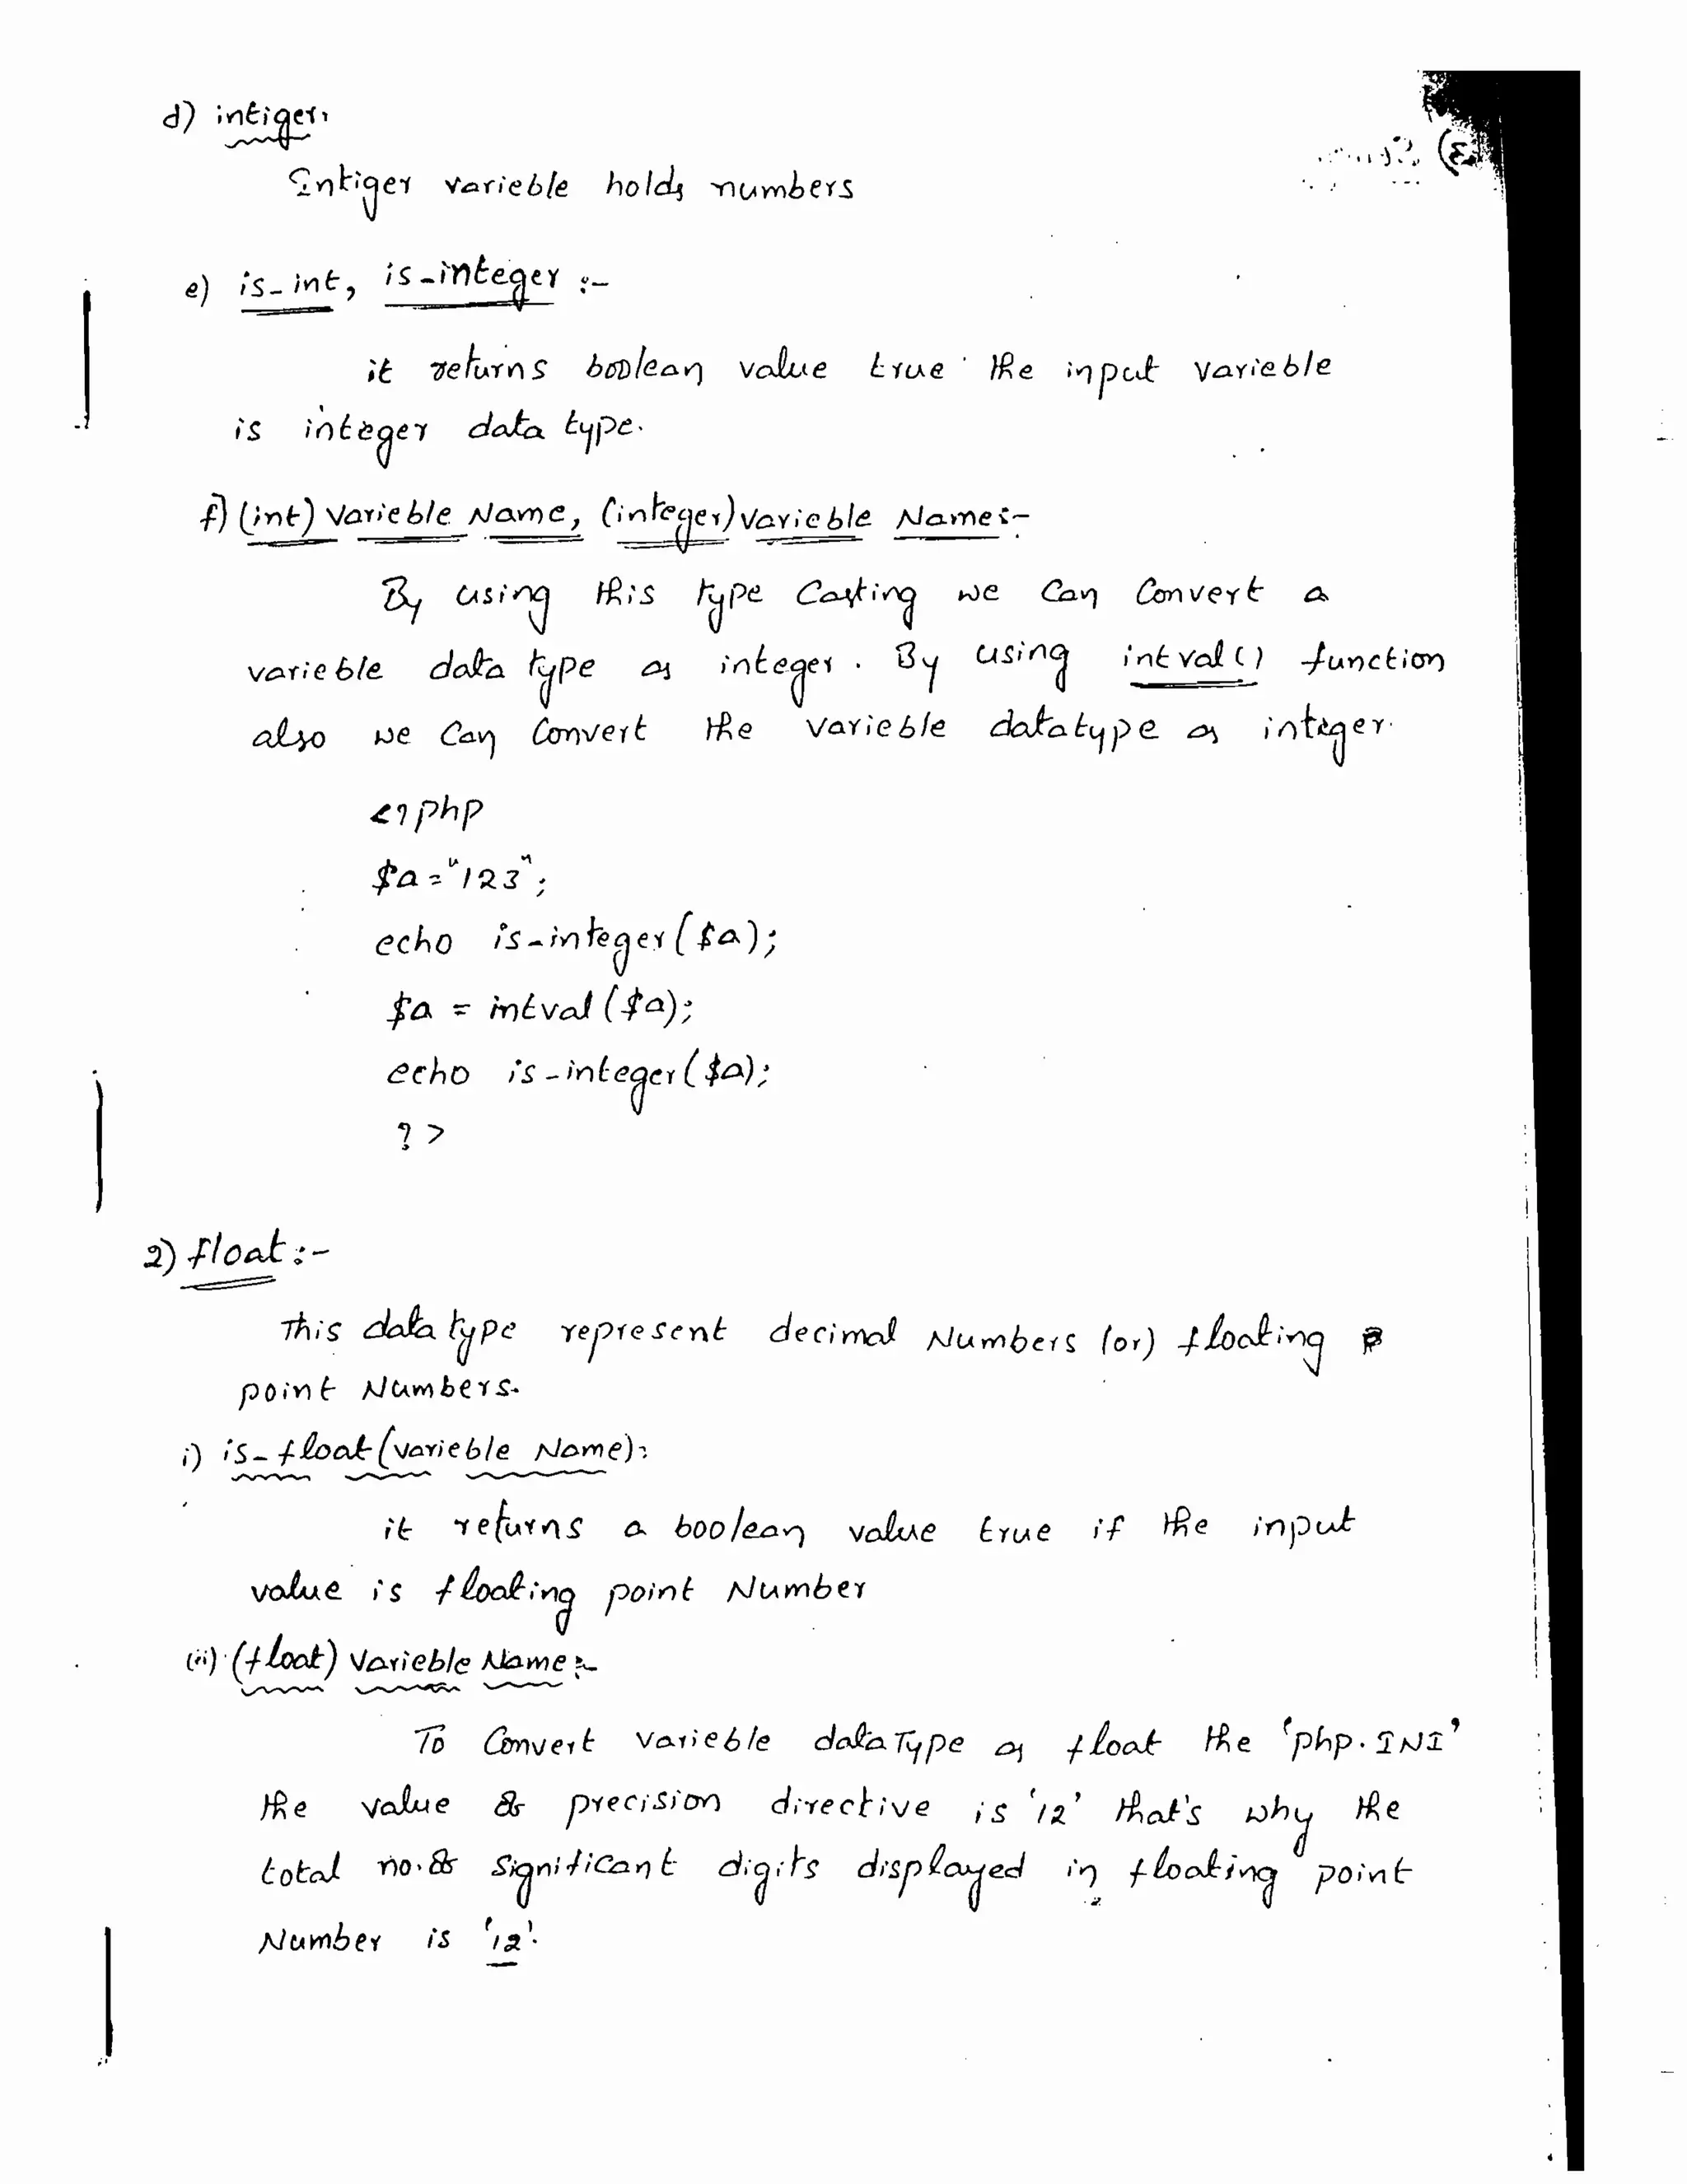 d) intiger,
Intiger varieble holds numbers
e) is_int, is_integer :-
it returns boolean value true the input varieble
is integer data type.
f) (int) varieble Name, (integer) varieble Name:-
By using this type Casting we can Convert a
varieble data type as integer. By using intval() function
also we can Convert the varieble datatype as integer.
<?php
$a="123";
echo is_integer($a);
$a = intval($a);
echo is_integer($a);
?>
2) float:-
This data type represent decimal Numbers (or) floating
point Numbers.
i) is_float(varieble Name):
it returns a boolean value true if the input
value is floating point Number
(ii) (float) varieble Name:-
To Convert varieble dataType as float the 'php.INI'
the value of precision directive is '12' that's why the
total no. of significant digits displayed in floating point
Number is '12'.